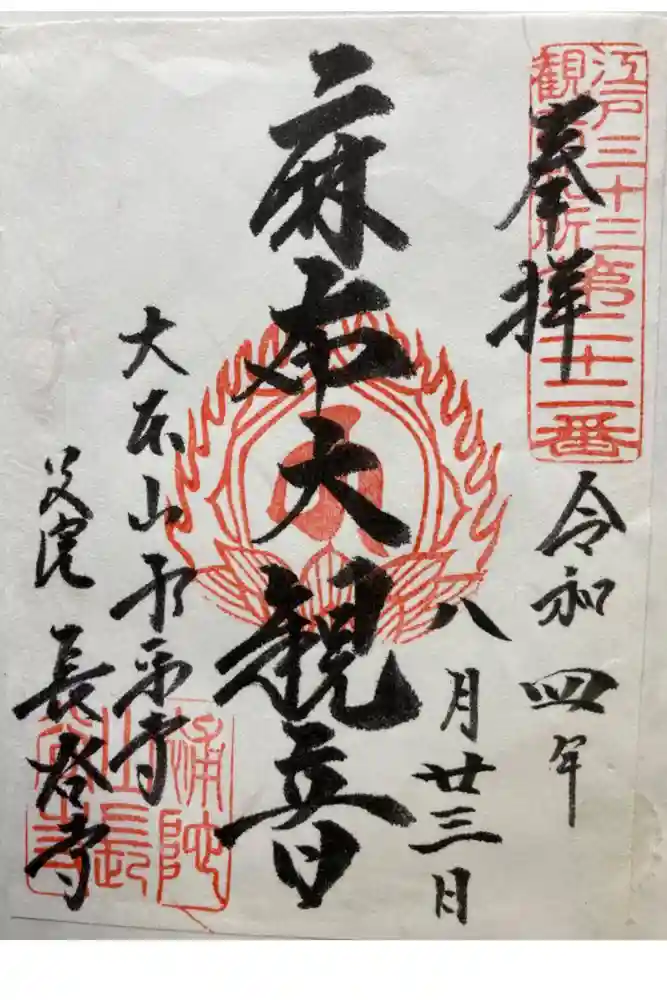 江戸三十三
観音札所
第二十二番
奉拝
令和四年
八月廿三日
麻布大観音
大本山永平寺
別院
長谷寺